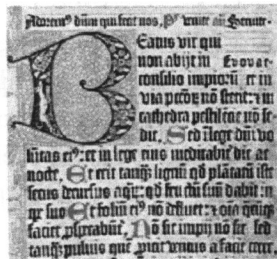 Adorem9 dñm qui fecit nos, Ps venite añ Seruite
Beatus vir qui
non abijt in Evovae
consilio impiorū et in
via pctōꝝ nō stetit: et in
cathedra pestilētie nō se-
dit, Sed ī lege dñi vo
lūtas ei9: et in lege eius meditabit die ac
nocte, Et erit tanqȝ lignū qd plātatū ist
secus decursus aqꝝ: qd fructū suū dabit ī
tpe suo Et foliū ei9 nō defluet: ⁊ oīa q̄cūqȝ
faciet, prosperabūt, Nō sic impij nō sic sed
tanqȝ puluis quē proicit ventus a facie terre,